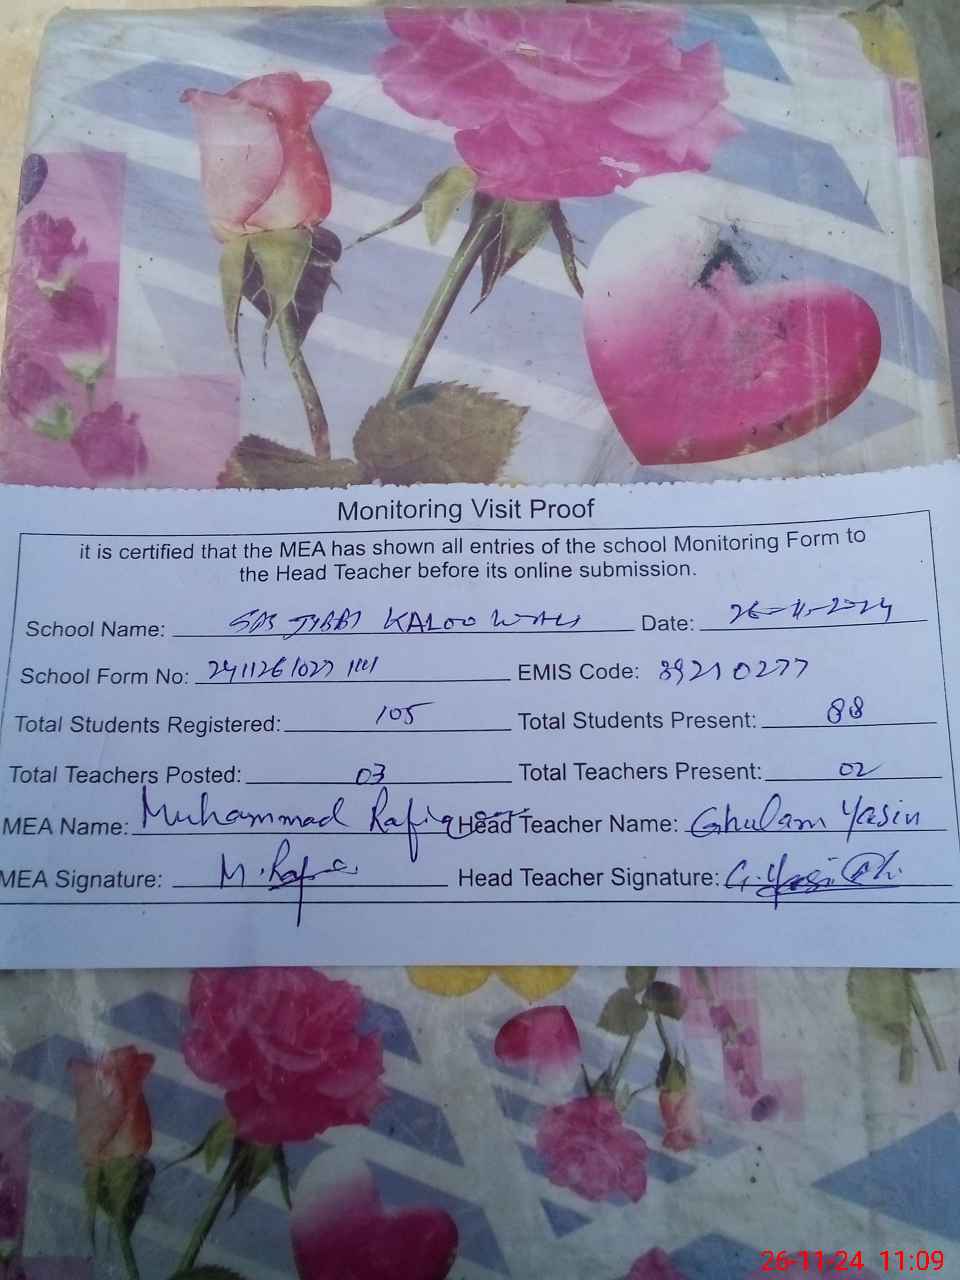 Monitoring Visit Proof
it is certified that the MEA has shown all entries of the school Monitoring Form to
the Head Teacher before its online submission.
School Name: KALOO Date: 26-11-2024
School Form No: EMIS Code: 39210277
Total Students Registered: 105 Total Students Present: 88
Total Teachers Posted: 03 Total Teachers Present: 02
MEA Name: Muhammad Rafiq Head Teacher Name: Ghulam Yasin
MEA Signature: Head Teacher Signature:
26-11-24 11:09